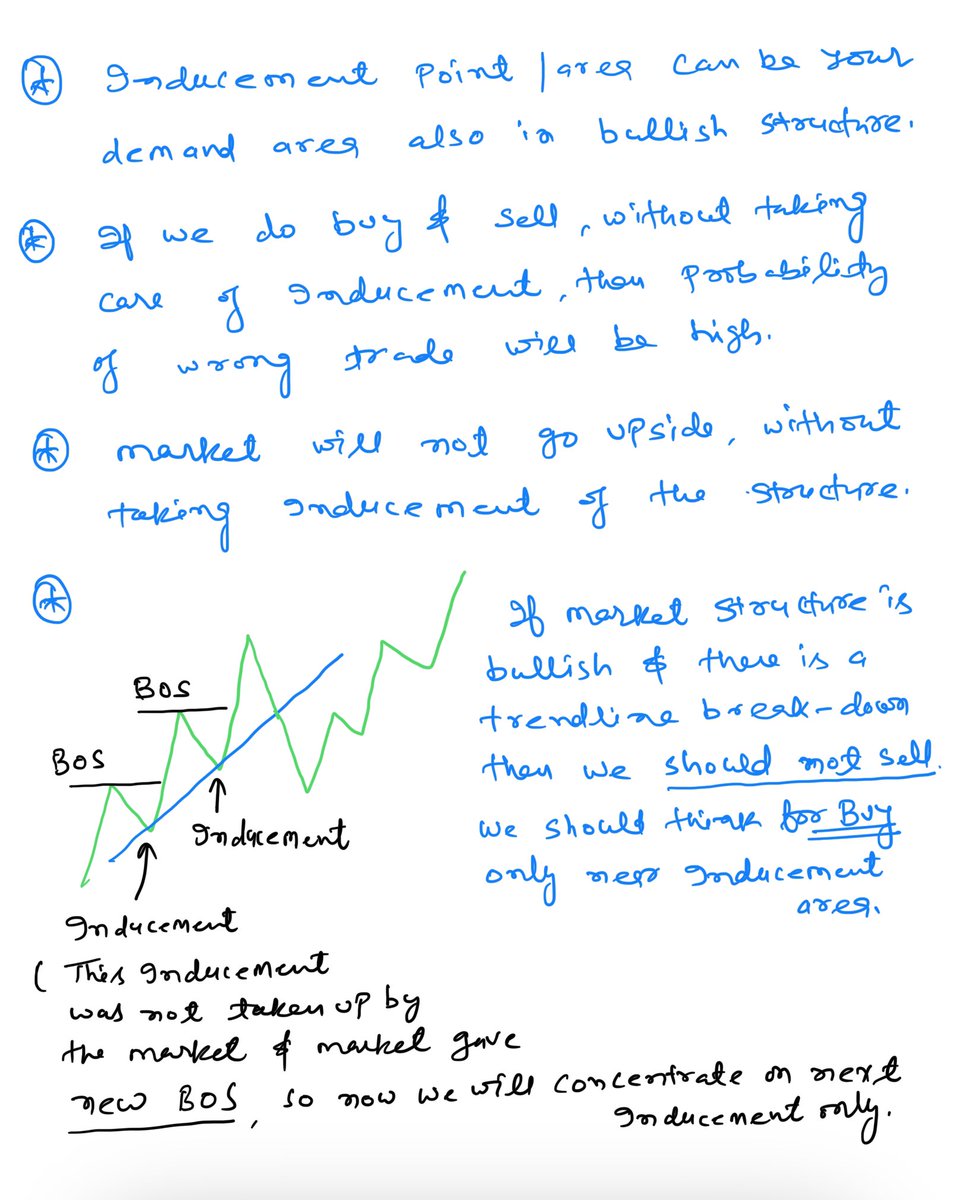 Inducement Point / area can be your
demand area also in bullish structure.
If we do buy & sell, without taking
care of Inducement, then Probability
of wrong trade will be high.
market will not go upside, without
taking Inducement of the structure.
If market structure is
bullish & there is a
trendline break-down
then we should not sell.
we should think for Buy
only near Inducement
area.
BOS
BOS
Inducement
Inducement
( This Inducement
was not taken up by
the market & market gave
new BOS, so now we will concentrate on next
Inducement only.